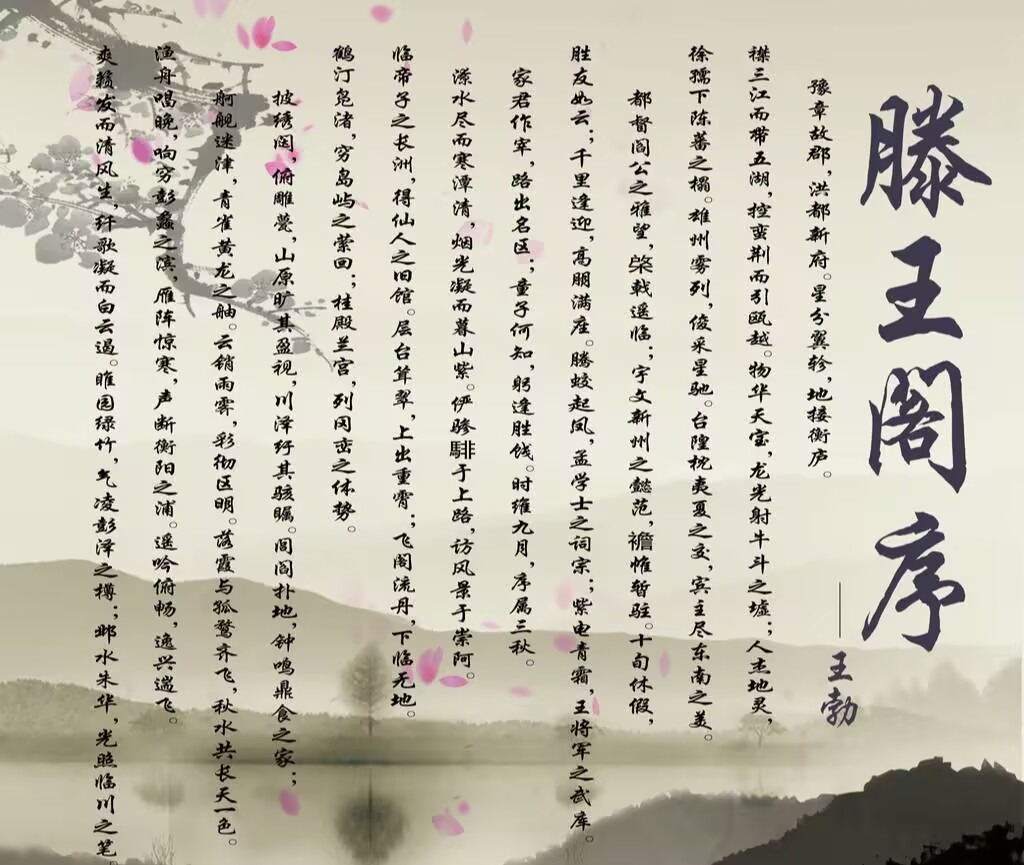 滕王阁序
——王勃
豫章故郡，洪都新府。星分翼轸，地接衡庐。
襟三江而带五湖，控蛮荆而引瓯越。物华天宝，龙光射牛斗之墟；人杰地灵，
徐孺下陈蕃之榻。雄州雾列，俊采星驰。台隍枕夷夏之交，宾主尽东南之美。
都督阎公之雅望，棨戟遥临；宇文新州之懿范，襜帷暂驻。十旬休假，
胜友如云；千里逢迎，高朋满座。腾蛟起凤，孟学士之词宗；紫电青霜，王将军之武库。
家君作宰，路出名区，童子何知，躬逢胜饯。时维九月，序属三秋。
潦水尽而寒潭清，烟光凝而暮山紫。俨骖騑于上路，访风景于崇阿。
临帝子之长洲，得仙人之旧馆。层台耸翠，上出重霄；飞阁流丹，下临无地。
鹤汀凫渚，穷岛屿之萦回；桂殿兰宫，列冈峦之体势。
披绣闼，俯雕甍，山原旷其盈视，川泽纡其骇瞩。闾阎扑地，钟鸣鼎食之家；
舸舰迷津，青雀黄龙之舳。云销雨霁，彩彻区明。落霞与孤鹜齐飞，秋水共长天一色。
渔舟唱晚，响穷彭蠡之滨，雁阵惊寒，声断衡阳之浦。遥吟俯畅，逸兴遄飞。
爽籁发而清风生，纤歌凝而白云遏。睢园绿竹，气凌彭泽之樽；邺水朱华，光照临川之笔。